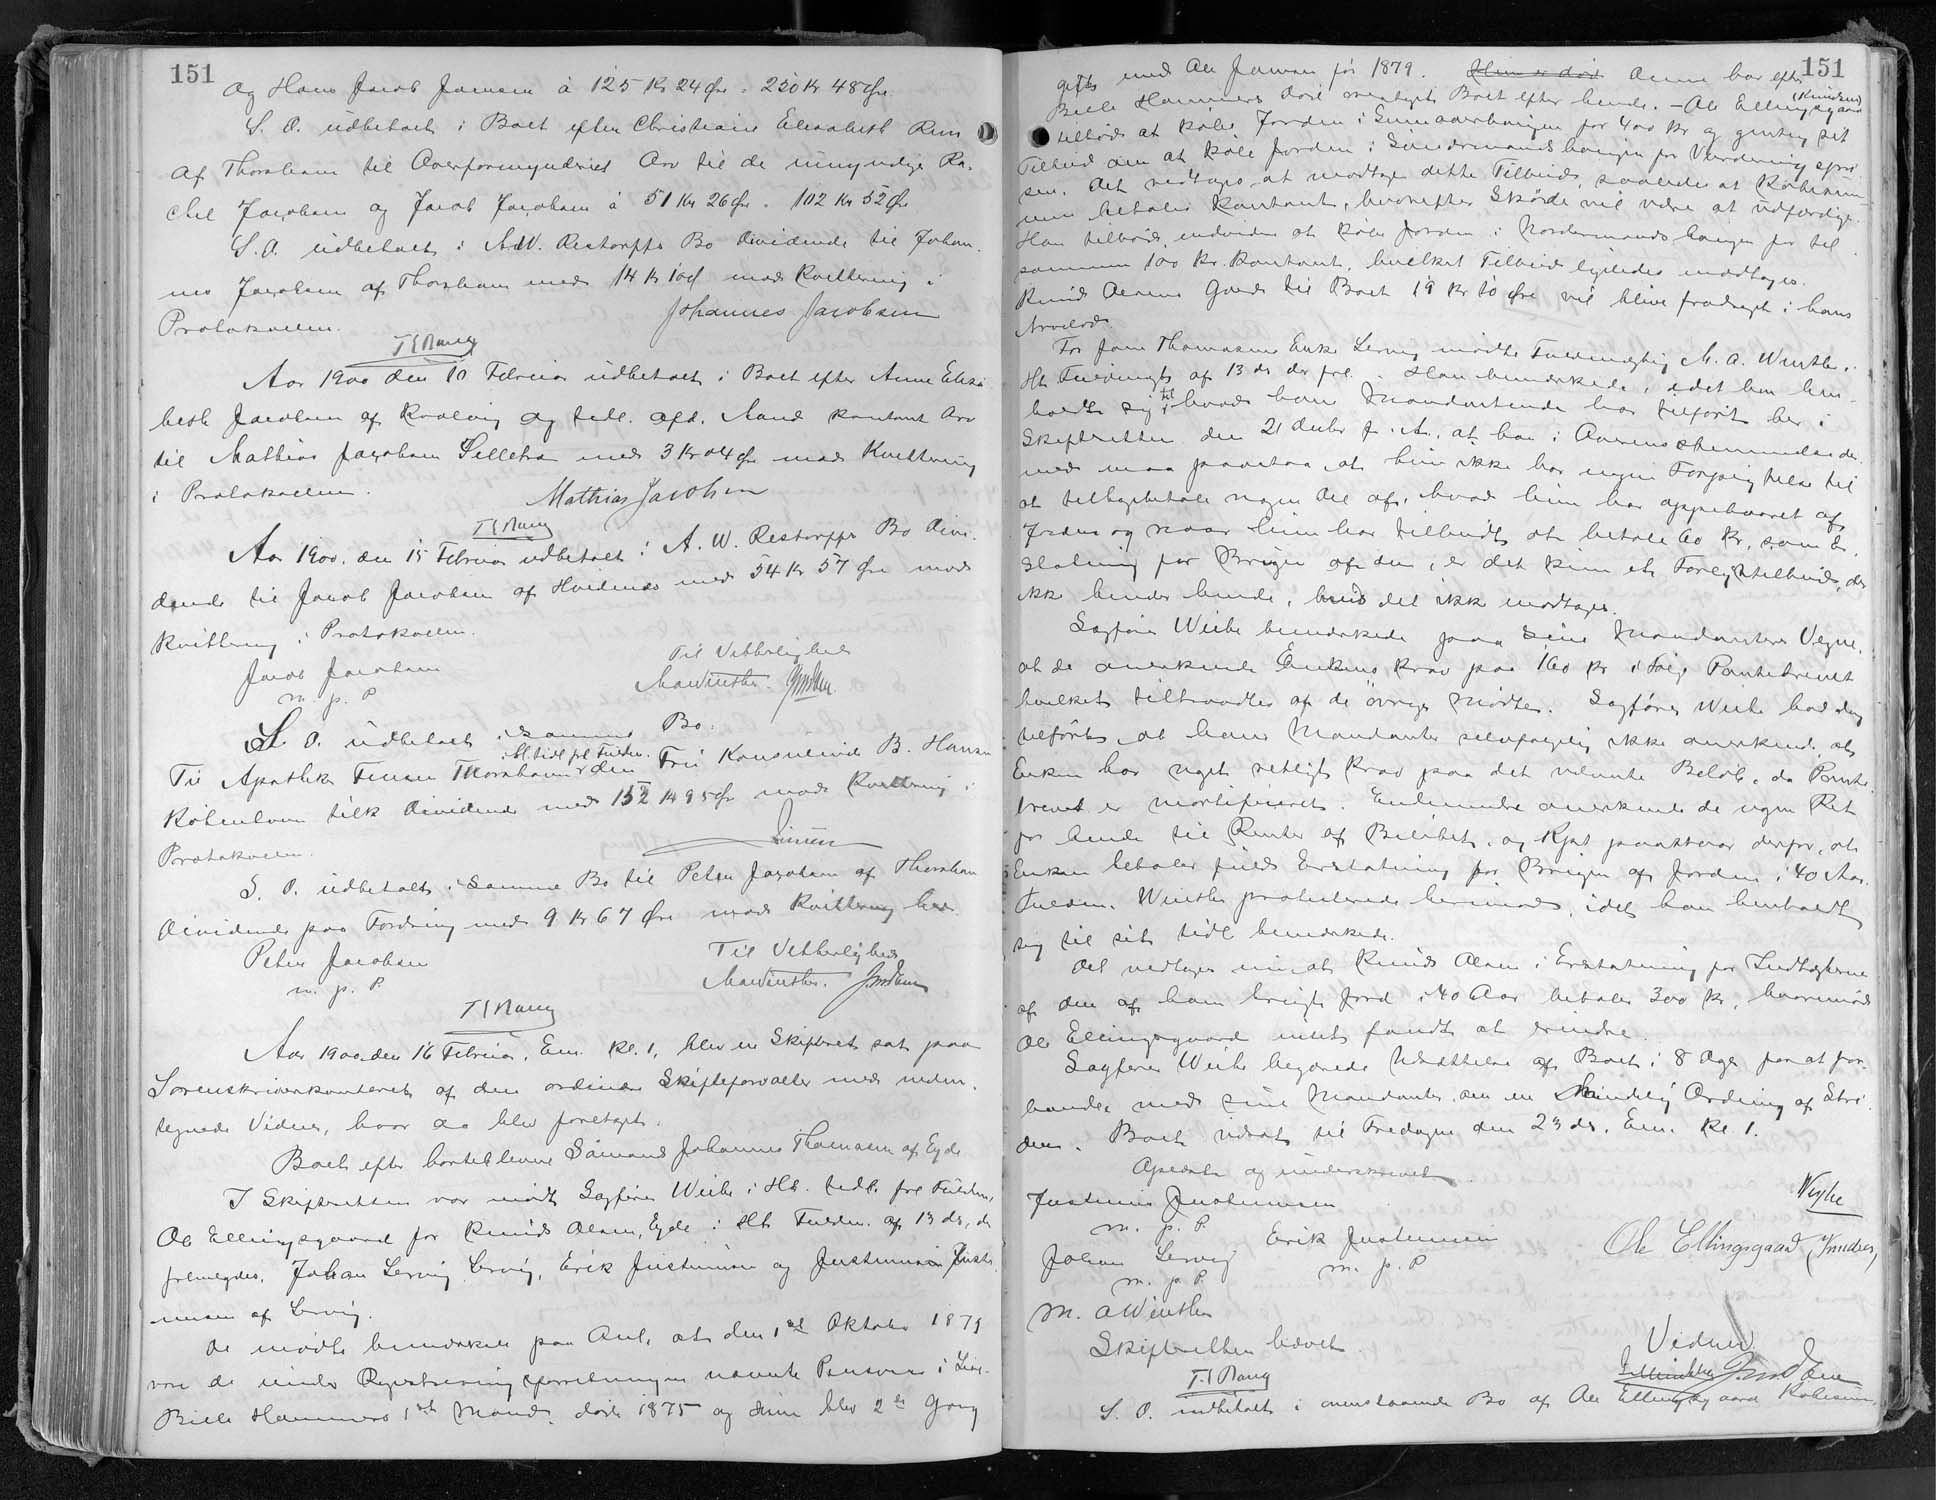 151
og Hans Jacob Joensen à 125 Kr 24 Øre = 250 Kr 48 Øre.
S. D. udbetalt i Boet efter Christiane Elisabeth
af Thorshavn til Overformynderiet Arv til de umyndige Ra-
chel Jacobsen og Jacob Jacobsen à 51 Kr 26 Øre = 102 Kr 52 Øre
S. D. udbetalt i A. W. Restorffs Bo Dividende til Johan-
nes Jacobsen af Thorshavn med 14 Kr 10 Ø mod Kvittering i
Protokollen. Johannes Jacobsen
Aar 1900 den 10 Februar udbetalt i Boet efter Anne Elisa-
beth Jacobsen af Kvalvig og tidl. afd. Mand kontant Arv
til Mathias Jacobsen Selletræ med 3 Kr 04 Øre mod Kvittering
i Protokollen. Mathias Jacobsen
Aar 1900, den 15 Februar udbetalt i A. W. Restorffs Bo Divi-
dende til Jacob Jacobsen af Hvidenæs med 54 Kr 57 Øre mod
Kvittering i Protokollen.
Jacob Jacobsen Til Vitterlighed
m. p. P MAWinther.
S. D. udbetalt i samme Bo.
i Hh til tidl frl Fuldm.
Til Apotheker Jensen Thorshavn den Fru Konsulinde B. Hansen
København tilk Dividende med 152 Kr 95 Øre mod Kvittering i
Protokollen. Jensen
S. D. udbetalt i samme Bo til Peter Jacobsen af Thorshavn
Dividende paa Fordring med 9 Kr 67 Øre mod Kvittering her.
Peter Jacobsen Til Vitterlighed
m. p. P. MAWinther.
Aar 1900 den 16 Februar, Em. Kl. 1, blev en Skifteret sat paa
Sorenskriverkontoret af den ordinære Skifteforvalter med neden-
tegnede Vidner, hvor da blev foretaget:
Boet efter borteblevne Sömand Johannes Thomasen af Ejde
I Skifteretten var mødt Sagfører Weihe i Hh. tidl. frl Fuldm,
Ole Ellingsgaard for Knud Olsen, Ejde i Hh Fuldm. af 13 ds, der
fremlagdes. Johan Lervig Lervig, Erik Justinussen og Justinus Justi-
nussen af Lervig.
De mødte bemærkede paa Anl. at den 1ste Oktober 1879
var de under Registreringsforretningen nævnte Personer i Live.
Bille Hammers 1ste Mand døde 1875 og hun blev 2den Gang
151
gift med Ole Joensen før 1879. Hun er død Anne har efter
(Knudsen)
Bille Hammers Död overtaget Boet efter hende. — Ole Ellingsgaard
tilbød at købe Jorden i for 400 Kr og gentog sit
Tilbud om at købe Jorden i Sündermandshaugen for Vurderingspri-
sen. Det vedtages at modtage dette Tilbud, saaledes at Købesum-
men betales kontant, hvorefter Skøde vil være at udfærdige.
Han tilbød endvidere at købe Jorden i Nordermandshaugen for til-
sammen 100 Kr. kontant, hvilket Tilbud ligeledes modtages.
Knud Olsens Gæld til Boet 19 Kr 10 Øre vil blive fradraget i hans
Arvelod.
For Joen Thomasens Enke Lervig mødte Fuldmægtig M. A. Winther i
Hh Fuldmagt af 13 ds der frl. Han bemærkede, idet han hen-
holdt sig til hvad hans Mandantinde har tilført her i
Skifteretten den 21 Decbr f. A., at han i Overensstemmelse der-
med maa paastaa, at hun ikke har nogen Forpligtelse til
at tilbagebetale nogen Del af, hvad hun har oppebaaret af
Jorden og naar hun har tilbudt at betale 60 Kr, som Er-
statning for Brugen af den, er det kun et Forligstilbud, der
ikke binder hende, hvis det ikke modtages.
Sagfører Weihe bemærkede paa sine Mandanters Vegne,
at de anerkende Enkens Krav paa 160 Kr i følge Pantebrevet
hvilket tiltraadtes af de øvrige Mødte. Sagfører Weihe bad dog
tilført, at hans Mandanter selvfølgelig ikke anerkende, at
Enken har noget retligt Krav paa det nævnte Beløb, da Pante-
brevet er mortificeret. Endmindre anerkende de nogen Ret
for hende til Renter af Beløbet, og Kpt paastaar derfor, at
Enken betaler fuld Erstatning for Brugen af Jorden i 40 Aar.
Fuldm. Winther protesterede herimod, idet han henholdt
sig til sit tidl bemærkede.
Det vedtages nu at Knud Olsen i Erstatning for Indtægterne
af den af ham brugte Jord i 40 Aar betaler 300 Kr, hvorimod
Ole Ellingsgaard intet fandt at erindre.
Sagfører Weihe begærede Udsættelse af Boet i 8 Dage for at for-
handle med sine Mandanter om en mindelig Ordning af Stri-
den. Boet udsat til Fredagen den 23 ds. Em. Kl. 1.
Oplæst og underskrevet.
Justinus Justinussen Weihe
m. p. P. Erik Justinussen Ole Ellingsgaard (Knudsen)
Johan Lervig m. p. P
m. p. P.
M. A Winther
Skifteretten hævet. Vidner
S. D. indbetalt i ovenstaaende Bo af Ole Ellingsgaard Købesum